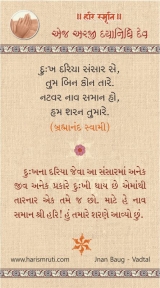 ॥ હરિ સ્મૃતિ ॥
એજ અરજી દયાનિધિ દેવ
દુઃખ દરિયા સંસાર સે,
તુમ બિન કૌન તારે.
નટવર નાવ સમાન હો,
હમ શરન તુમારે.
(બ્રહ્માનંદ સ્વામી)
દુઃખના દરિયા જેવા આ સંસારમાં અનેક
જીવ અનેક પ્રકારે દુઃખી થાય છે એમાંથી
તારનાર એક તમે જ છો. માટે હે નાવ
સમાન શ્રી હરિ! હું તમારે શરણે આવ્યો છું.
www.harismruti.com Jnan Baug - Vadtal